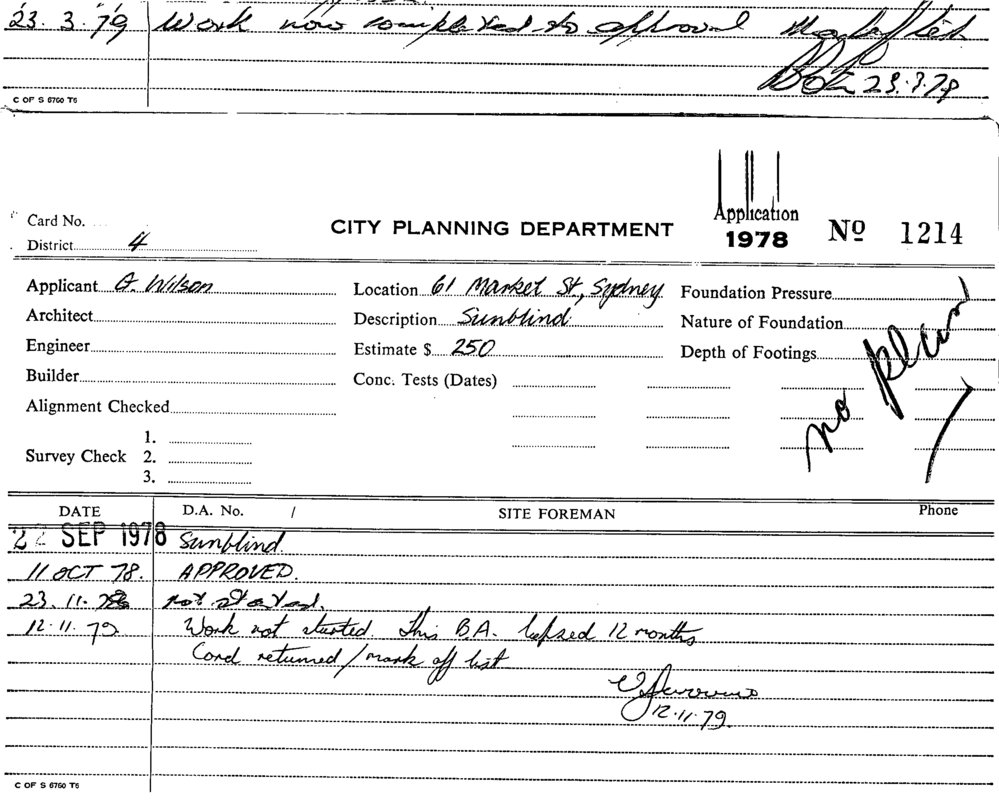 23. 3. 79 Work now completed to approval
23.3.79
C OF S 6760 T6
Card No.
District 4
CITY PLANNING DEPARTMENT
Application
1978
No 1214
Applicant G. Wilson
Location 61 Market St, Sydney
Foundation Pressure
Architect
Description Sunblind
Nature of Foundation
Engineer
Estimate $ 250
Depth of Footings
no plan
Builder
Conc. Tests (Dates)
Alignment Checked
1.
Survey Check 2.
3.
DATE D.A. No. / SITE FOREMAN Phone
22 SEP 1978 Sunblind.
11 OCT 78. APPROVED.
23. 11. 78 not started.
12.11.79 Work not started. This B.A. lapsed 12 months
Card returned / mark off list
12.11.79.
C OF S 6760 T6